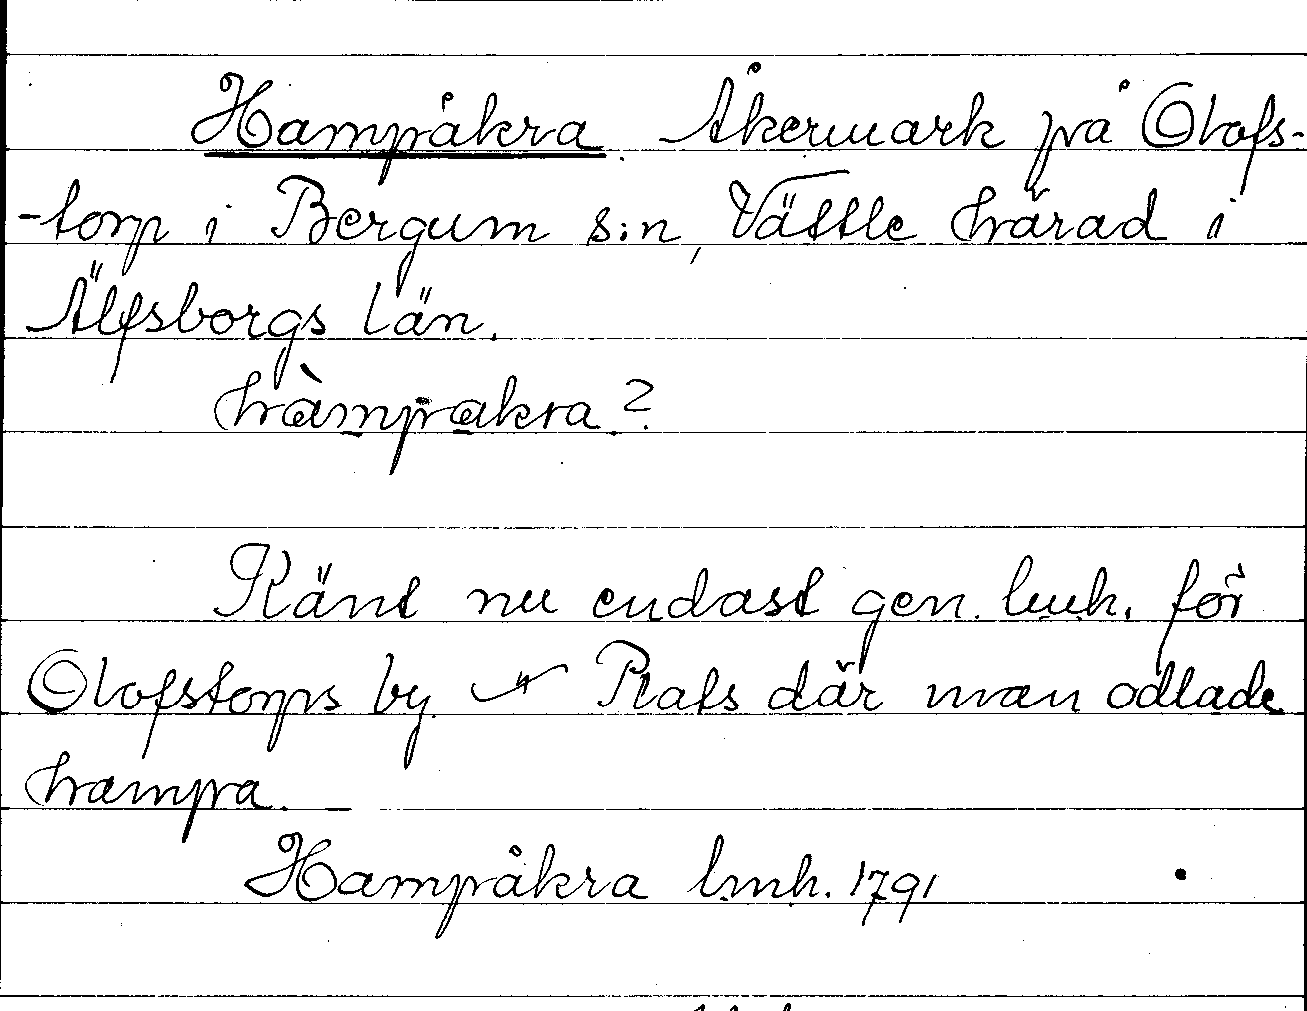 Hampåkra. Åkermark på Olofs-
-torp i Bergum s:n, Vättle härad i
Älfsborgs län.
hàmpakra?
Känt nu endast gen. lmh. för
Olofstorps by. Plats där man odlade
hampa. —
Hampåkra lmh. 1791